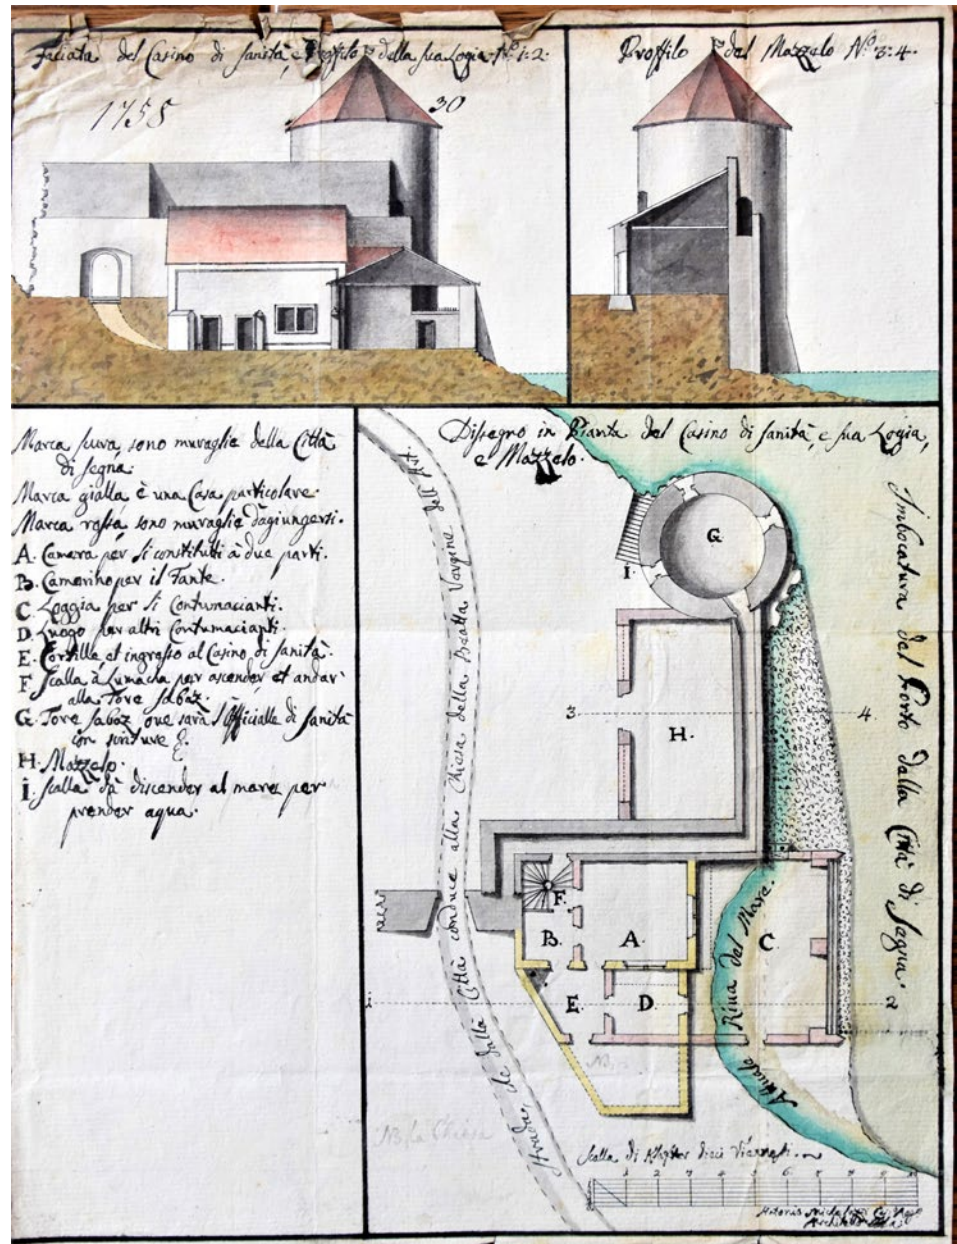 Faciata del Casino di Sanità, e Proffilo della sua Logia Nº 1: 2:
Proffilo del Mazzelo Nº 3: 4.
1755
30
Marca scura, sono muraglie della Città
di Segna.
Marca gialla, è una Casa particolare.
Marca rossa, sono muraglie d'agiungersi.
A. Camera per li constituti à due parti.
B. Camorino per il Fante.
C. Loggia per li Contumacianti.
D. Luogo per altri Contumacianti.
E. Cortille et ingresso al Casino di Sanità.
F. Scalla à Lumacha per ascender, et andar
alla Tore Sabaz.
G. Tore Sabaz, ove sarà l'Officialle di Sanità
con scriture &.
H. Mazzelo.
I. Scalla dà discender al mare per
prender aqua.
Dissegno in Pianta del Casino di Sanità, e sua Logia,
e Mazzelo.
Imbocatura del Porto dalla Città di Segna.
Strada, che dalla Città conduce alla Chiesa della Beatta Vergine dell'
G.
I.
3
4.
H.
F.
B.
A.
C.
E.
D.
1
2
Riva del Mare.
NB la Chiesa
Scalla di Klapter dieci Viennesi.
1 2 3 4 5 6 7 8 9 10
Antonio
Architetto